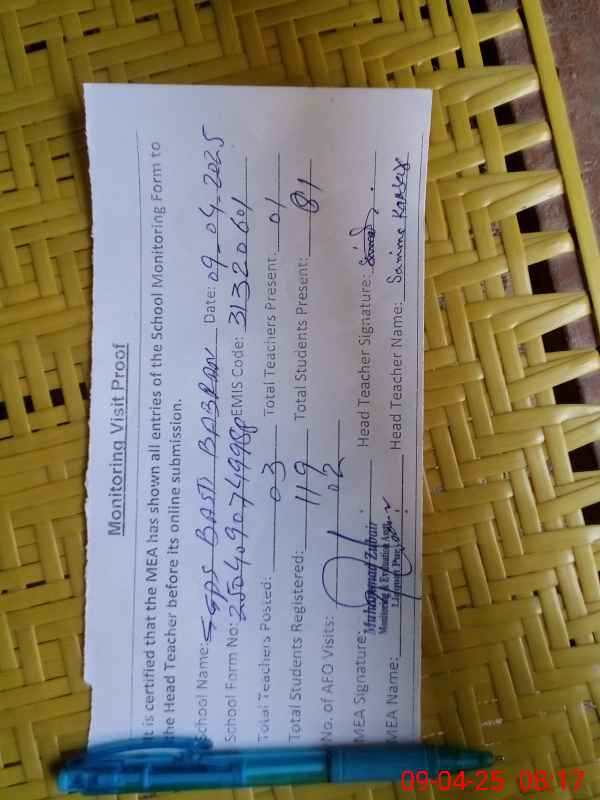 Monitoring Visit Proof
It is certified that the MEA has shown all entries of the School Monitoring Form to
the Head Teacher before its online submission.
School Name: SGPS BASTI BABRAN Date: 09-04-2025
School Form No: EMIS Code: 31320601
Total Teachers Posted: 03 Total Teachers Present: 01
Total Students Registered: 119 Total Students Present: 81
No. of AEO Visits: 02
MEA Signature: Head Teacher Signature:
Muhammad Zubair
Monitoring & Evaluation Asstt
MEA Name: Head Teacher Name:
09-04-25 08:17